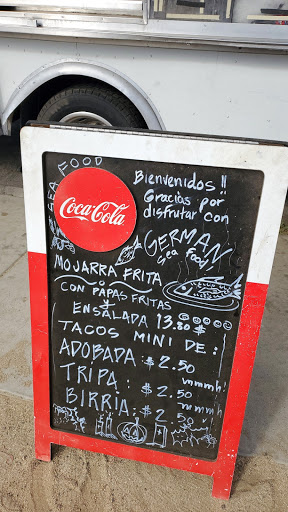 SEA FOOD
Bienvenidos !!
Gracias por
disfrutar con
Coca-Cola
GERMAN
Sea food
MOJARRA FRITA
CON PAPAS FRITAS
Y
ENSALADA 13.80 $
TACOS MINI DE :
ADOBADA : $ 2.50
TRIPA : $ 2.50 mmmh!
BIRRIA : $ 2.50 mmmh